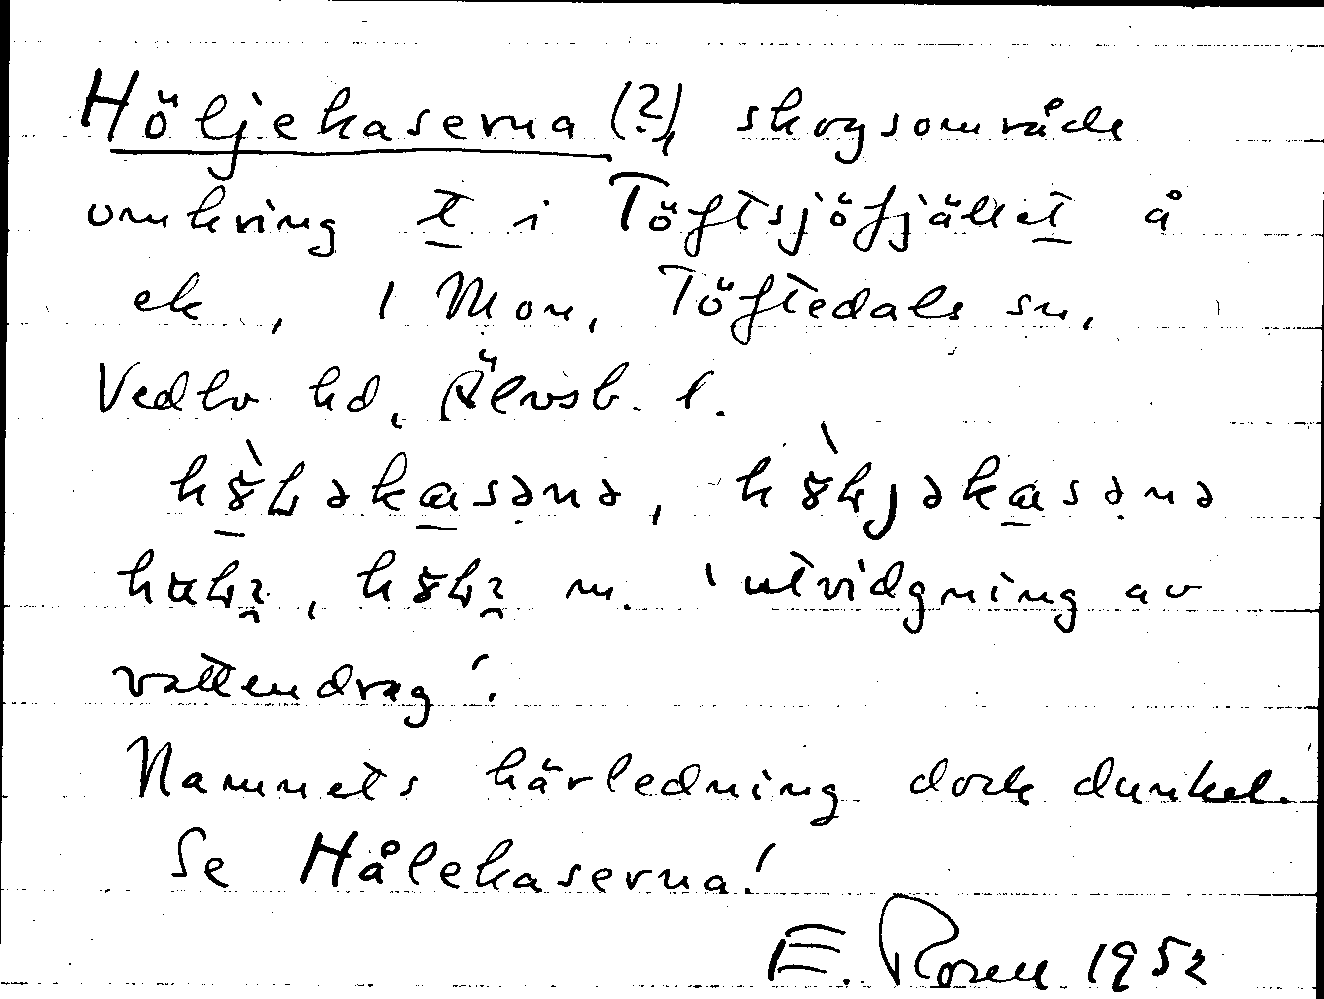 Höljekaserna (?), skogsområde
omkring t i Töftsjöfjället å
ek, 1 Mon, Töftedals sn,
Vedbo hd, Älvsb. l.
utvidgning av
vattendrag'.
Namnets härledning dock dunkel.
Se Hålekaserna!
E. Rosell 1952